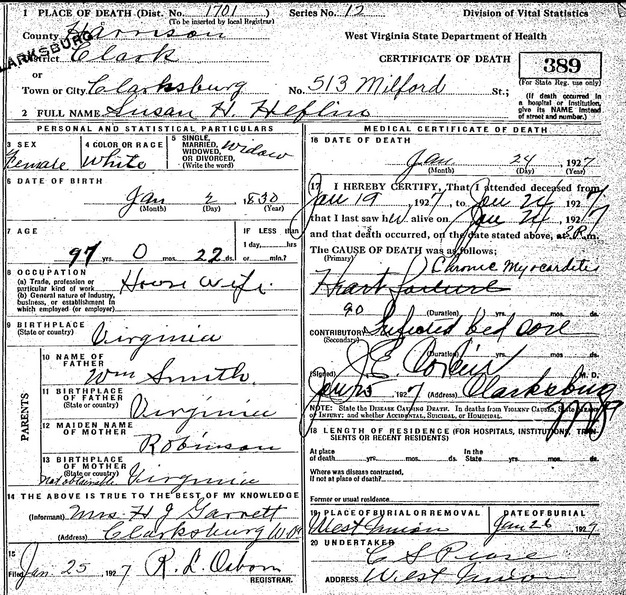 1 PLACE OF DEATH (Dist. No. 1701
(To be inserted by local Registrar)
Series No. 12
Division of Vital Statistics
County Harrison
CLARKSBURG
District Clark
or
Town or City Clarksburg
West Virginia State Department of Health
CERTIFICATE OF DEATH
389
(For State Reg. use only)
No. 513 Milford St.;
(If death occurred in
a hospital or institution,
give its NAME instead
of street and number.)
2 FULL NAME Susan H. Heflin
PERSONAL AND STATISTICAL PARTICULARS
3 SEX
Female
4 COLOR OR RACE
White
5 SINGLE,
MARRIED,
WIDOWED,
OR DIVORCED,
(Write the word)
Widow
6 DATE OF BIRTH
Jan 2 1830
(Month) (Day) (Year)
7 AGE
97 yrs. 0 mos. 22 ds.
IF LESS than
1 day, hrs
or min.?
8 OCCUPATION
(a) Trade, profession or
particular kind of work
(b) General nature of industry,
business, or establishment in
which employed (or employer)
House Wife.
9 BIRTHPLACE
(State or country)
Virginia
PARENTS
10 NAME OF
FATHER
Wm Smith.
11 BIRTHPLACE
OF FATHER
(State or country)
Virginia
12 MAIDEN NAME
OF MOTHER
Robinson
13 BIRTHPLACE
OF MOTHER
(State or country)
Not obtainable Virginia
14 THE ABOVE IS TRUE TO THE BEST OF MY KNOWLEDGE
(Informant) Mrs. H J Garrett
(Address) Clarksburg W. Va
15
Filed Jan. 25 1927 R. L. Osborn
REGISTRAR.
MEDICAL CERTIFICATE OF DEATH
16 DATE OF DEATH
Jan 24, 1927
(Month) (Day) (Year)
17 I HEREBY CERTIFY, That I attended deceased from
Jan 19, 1927, to Jan 24, 1927
that I last saw her alive on Jan 24, 1927
and that death occurred, on the date stated above, at 2 P.m.
The CAUSE OF DEATH was as follows;
(Primary) Chronic Myocarditis
Heart failure
90 (Duration) yrs. mos. ds.
CONTRIBUTORY Infected bed sore
(Secondary)
(Duration) yrs. mos. ds.
(Signed) J. E. M. D.
Jan 25 1927 (Address) Clarksburg
NOTE: State the DISEASE CAUSING DEATH. In deaths from VIOLENT CAUSES, State MEANS
OF INJURY; and whether ACCIDENTAL, SUICIDAL, OR HOMICIDAL.
18 LENGTH OF RESIDENCE (FOR HOSPITALS, INSTITUTIONS, TRAN-
SIENTS OR RECENT RESIDENTS)
At place
of death yrs. mos. ds.
In the
State yrs. mos. ds.
Where was disease contracted,
if not at place of death?
Former or usual residence
19 PLACE OF BURIAL OR REMOVAL
West Union
DATE OF BURIAL
Jan 26, 1927
20 UNDERTAKER
C S Pearse
ADDRESS West Union